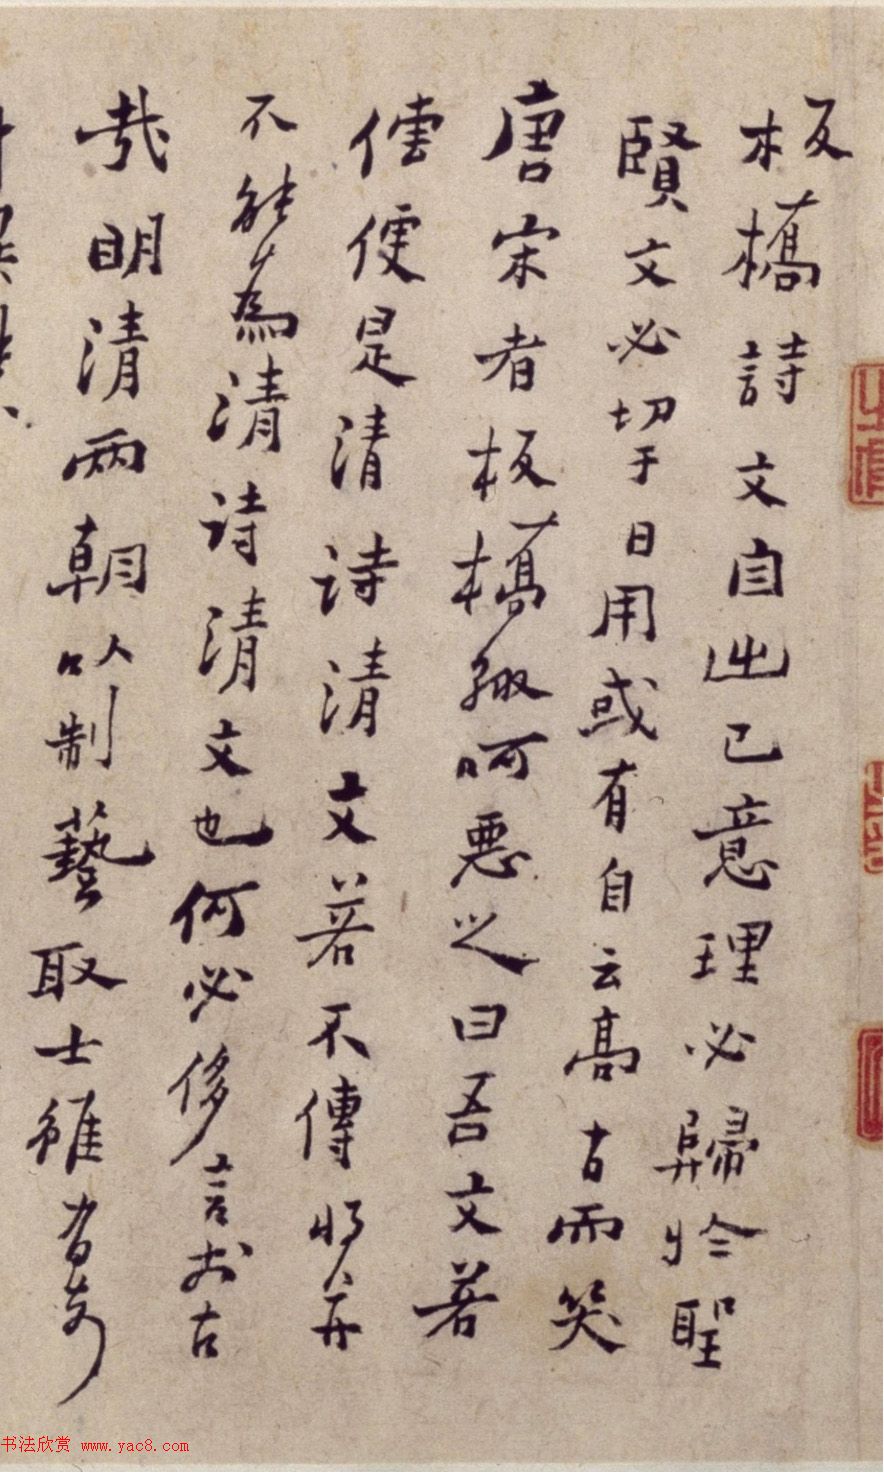 板橋詩文自出己意理必歸於聖
賢文必切于日用或有自云高古而笑
唐宋者板橋輒呵惡之曰吾文若
傳便是清詩清文若不傳將并
不能為清詩清文也何必侈言前古
哉明清兩朝以制藝取士雖有奇
书法欣赏 www.yac8.com